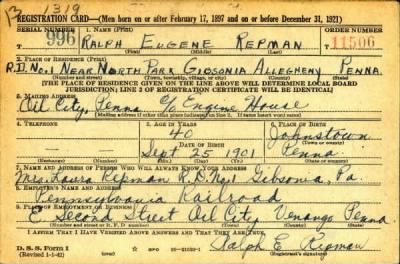 1319
REGISTRATION CARD—(Men born on or after February 17, 1897 and on or before December 31, 1921)
SERIAL NUMBER 1. NAME (Print) ORDER NUMBER
996 RALPH EUGENE REPMAN 11506
2. PLACE OF RESIDENCE (Print)
R.D. No. 1 NEAR NORTH PARK GIBSONIA ALLEGHENY PENNA.
(Number and street) (Town, township, village, or city) (County) (State)
[THE PLACE OF RESIDENCE GIVEN ON THE LINE ABOVE WILL DETERMINE LOCAL BOARD
JURISDICTION; LINE 2 OF REGISTRATION CERTIFICATE WILL BE IDENTICAL]
3. MAILING ADDRESS
Oil City, Penna c/o Eugene House
[Mailing address if other than place indicated on line 2. If same insert word same]
4. TELEPHONE 5. AGE IN YEARS 6. PLACE OF BIRTH
40 Johnstown
DATE OF BIRTH (Town or county)
Sept 25 1901 Penna
(Exchange) (Number) (Mo.) (Day) (Yr.) (State or country)
7. NAME AND ADDRESS OF PERSON WHO WILL ALWAYS KNOW YOUR ADDRESS
Mrs. Laura Repman R.D. No. 1 Gibsonia, Pa.
8. EMPLOYER'S NAME AND ADDRESS
Pennsylvania Railroad
9. PLACE OF EMPLOYMENT OR BUSINESS
E. Second Street Oil City Venango Penna
(Number and street or R. F. D. number) (Town) (County) (State)
I AFFIRM THAT I HAVE VERIFIED ABOVE ANSWERS AND THAT THEY ARE TRUE.
D. S. S. Form 1 GPO Ralph E. Repman
(Revised 1-1-42) (Registrant's signature)